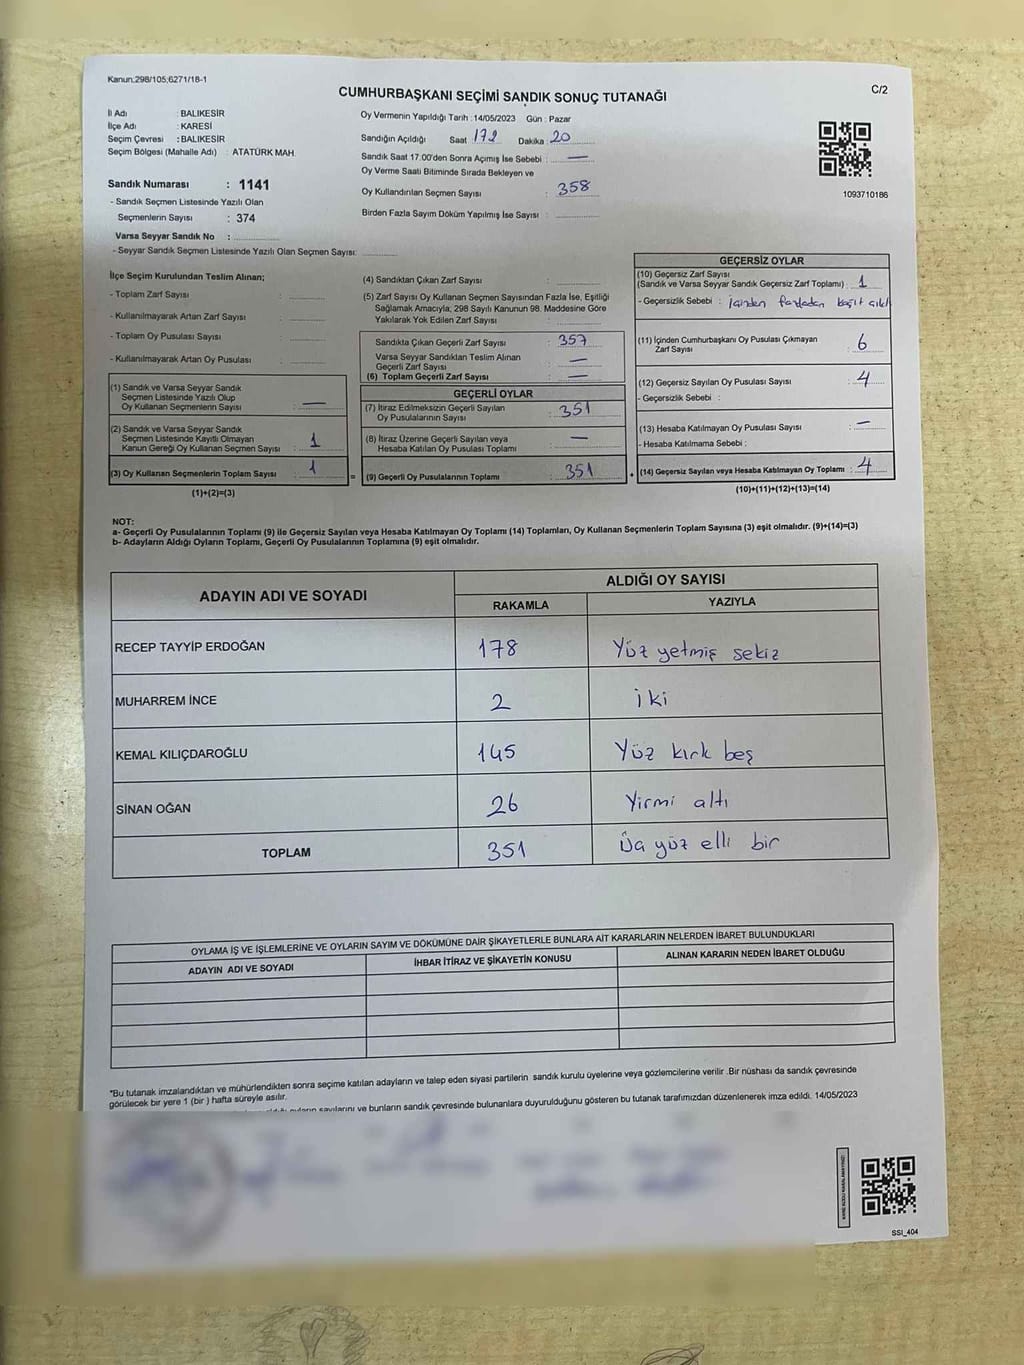 Kanun:298/105;6271/18-1
CUMHURBAŞKANI SEÇİMİ SANDIK SONUÇ TUTANAĞI
C/2
İl Adı : BALIKESİR
İlçe Adı : KARESİ
Seçim Çevresi : BALIKESİR
Seçim Bölgesi (Mahalle Adı) : ATATÜRK MAH.
Sandık Numarası : 1141
- Sandık Seçmen Listesinde Yazılı Olan
Seçmenlerin Sayısı : 374
Varsa Seyyar Sandık No :
- Seyyar Sandık Seçmen Listesinde Yazılı Olan Seçmen Sayısı:
Oy Vermenin Yapıldığı Tarih :14/05/2023 Gün : Pazar
Sandığın Açıldığı Saat Dakika : 20
Sandık Saat 17:00'den Sonra Açımış İse Sebebi : —
Oy Verme Saati Bitiminde Sırada Bekleyen ve
Oy Kullandırılan Seçmen Sayısı : 358
Birden Fazla Sayım Döküm Yapılmış İse Sayısı :
1093710186
İlçe Seçim Kurulundan Teslim Alınan;
- Toplam Zarf Sayısı :
- Kullanılmayarak Artan Zarf Sayısı :
- Toplam Oy Pusulası Sayısı :
- Kullanılmayarak Artan Oy Pusulası :
(1) Sandık ve Varsa Seyyar Sandık
Seçmen Listesinde Yazılı Olup
Oy Kullanan Seçmenlerin Sayısı : —
(2) Sandık ve Varsa Seyyar Sandık
Seçmen Listesinde Kayıtlı Olmayan
Kanun Gereği Oy Kullanan Seçmen Sayısı : 1
(3) Oy Kullanan Seçmenlerin Toplam Sayısı : 1
(1)+(2)=(3)
(4) Sandıktan Çıkan Zarf Sayısı :
(5) Zarf Sayısı Oy Kullanan Seçmen Sayısından Fazla İse, Eşitliği
Sağlamak Amacıyla, 298 Sayılı Kanunun 98. Maddesine Göre
Yakılarak Yok Edilen Zarf Sayısı :
Sandıkta Çıkan Geçerli Zarf Sayısı : 357
Varsa Seyyar Sandıktan Teslim Alınan
Geçerli Zarf Sayısı : —
(6) Toplam Geçerli Zarf Sayısı : —
GEÇERLİ OYLAR
(7) İtiraz Edilmeksizin Geçerli Sayılan
Oy Pusulalarının Sayısı : 351
(8) İtiraz Üzerine Geçerli Sayılan veya
Hesaba Katılan Oy Pusulası Toplamı : —
= (9) Geçerli Oy Pusulalarının Toplamı : 351
GEÇERSİZ OYLAR
(10) Geçersiz Zarf Sayısı
(Sandık ve Varsa Seyyar Sandık Geçersiz Zarf Toplamı) : 1
- Geçersizlik Sebebi : içinden fazladan kağıt çıktı
(11) İçinden Cumhurbaşkanı Oy Pusulası Çıkmayan
Zarf Sayısı : 6
(12) Geçersiz Sayılan Oy Pusulası Sayısı : 4
- Geçersizlik Sebebi :
(13) Hesaba Katılmayan Oy Pusulası Sayısı : —
- Hesaba Katılmama Sebebi :
+ (14) Geçersiz Sayılan veya Hesaba Katılmayan Oy Toplamı : 4
(10)+(11)+(12)+(13)=(14)
NOT:
a- Geçerli Oy Pusulalarının Toplamı (9) ile Geçersiz Sayılan veya Hesaba Katılmayan Oy Toplamı (14) Toplamları, Oy Kullanan Seçmenlerin Toplam Sayısına (3) eşit olmalıdır. (9)+(14)=(3)
b- Adayların Aldığı Oyların Toplamı, Geçerli Oy Pusulalarının Toplamına (9) eşit olmalıdır.
ADAYIN ADI VE SOYADI ALDIĞI OY SAYISI
RAKAMLA YAZIYLA
RECEP TAYYİP ERDOĞAN 178 Yüz yetmiş sekiz
MUHARREM İNCE 2 iki
KEMAL KILIÇDAROĞLU 145 Yüz kırk beş
SİNAN OĞAN 26 Yirmi altı
TOPLAM 351 Üç yüz elli bir
OYLAMA İŞ VE İŞLEMLERİNE VE OYLARIN SAYIM VE DÖKÜMÜNE DAİR ŞİKAYETLERLE BUNLARA AİT KARARLARIN NELERDEN İBARET BULUNDUKLARI
ADAYIN ADI VE SOYADI İHBAR İTİRAZ VE ŞİKAYETİN KONUSU ALINAN KARARIN NEDEN İBARET OLDUĞU
*Bu tutanak imzalandıktan ve mühürlendikten sonra seçime katılan adayların ve talep eden siyasi partilerin sandık kurulu üyelerine veya gözlemcilerine verilir .Bir nüshası da sandık çevresinde
görülecek bir yere 1 (bir ) hafta süreyle asılır.
oyların sayılarını ve bunların sandık çevresinde bulunanlara duyurulduğunu gösteren bu tutanak tarafımızdan düzenlenerek imza edildi. 14/05/2023
SSI_404